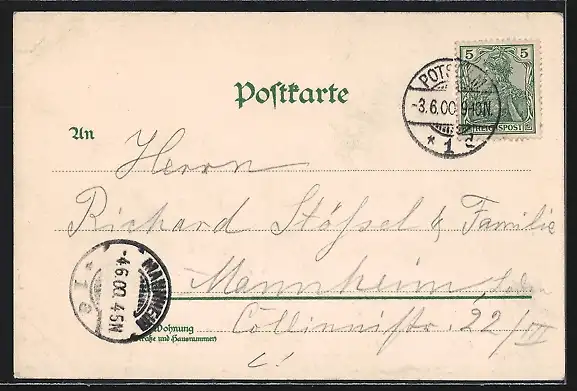 5 5
REICHSPOST
POTSDAM
-3.6.00.9-10N.
* 1 d
Postkarte
An
Herrn
Richard Stössel & Familie
Mannheim, Baden
Wohnung
(Straße und Hausnummer)
Collinistr. 22/III
MANNHEIM
-4.6.00.4-5N
* 1 e